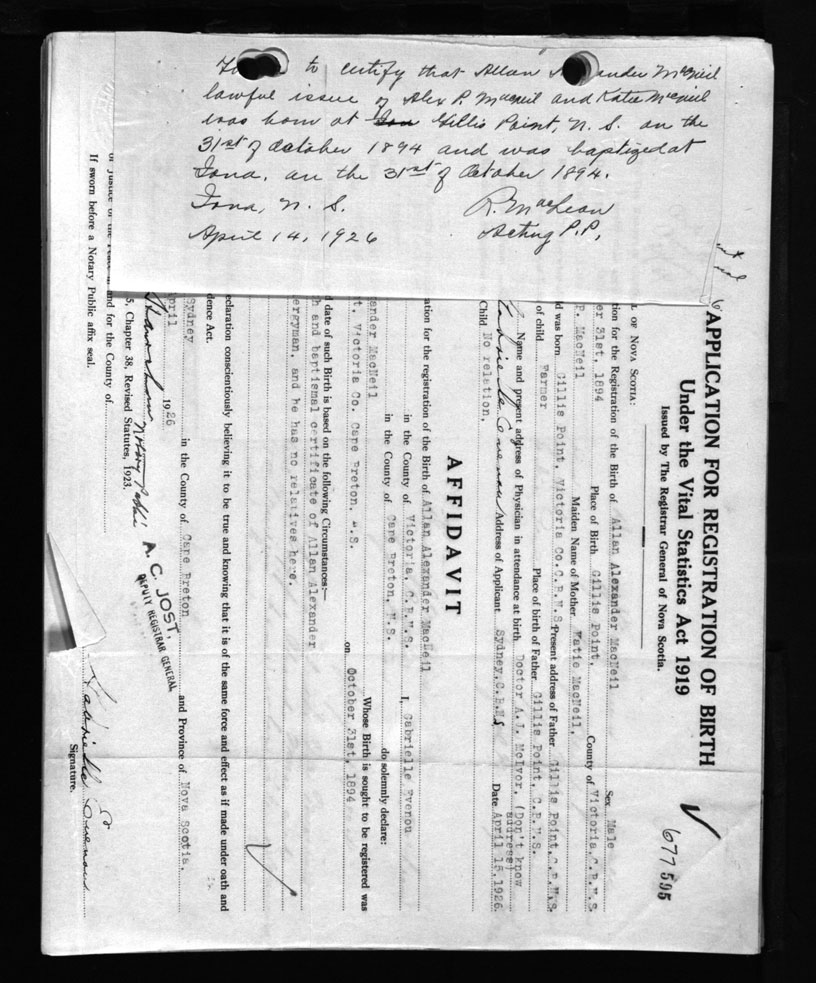 to certify that Allan Alexander McNeil
lawful issue of Alex P. MacNeil and Katie McNeil
was born at Gillis Point, N. S. on the
31st of October 1894 and was baptized at
Iona, on the 31st of October 1894.
Iona, N. S. R. MacLean
April 14, 1926 Acting P.P.
677595
APPLICATION FOR REGISTRATION OF BIRTH
Under the Vital Statistics Act 1919
Issued by The Registrar General of Nova Scotia.
OF NOVA SCOTIA:
for the Registration of the Birth of Allan Alexander MacNeil Sex Male
31st, 1894 Place of Birth Gillis Point, County of Victoria, C.B.N.S.
P. MacNeil Maiden Name of Mother Katie MacNeil.
was born Gillis Point, Victoria Co.C.B.N.S. Present address of Father Gillis Point, C.B.N.S.
of child Farmer Place of birth of Father Gillis Point, C.B.N.S.
Name and present address of Physician in attendance at birth Doctor A.J. McIvor, (Don't know address)
Address of Applicant Sydney, C.B.N.S. Date April 15, 1926.
Child No relation.
AFFIDAVIT
for the registration of the Birth of Allan Alexander MacNeil
in the County of Victoria, C.B.N.S. I, Gabrielle Evenou
in the County of Cape Breton, N.S. do solemnly declare:
MacNeil Whose Birth is sought to be registered was
Victoria Co. Cape Breton, N.S. on October 31st, 1894
date of such Birth is based on the following Circumstances:—
and baptismal certificate of Allan Alexander
and he has no relatives here.
declaration conscientiously believing it to be true and knowing that it is of the same force and effect as if made under oath and
Act.
Sydney in the County of Cape Breton and Province of Nova Scotia.
April 1926
Notary Public
A. C. JOST,
DEPUTY REGISTRAR GENERAL
5, Chapter 38, Revised Statutes, 1923.
and for the County of
If sworn before a Notary Public affix seal.
Gabrielle Evenou
Signature.